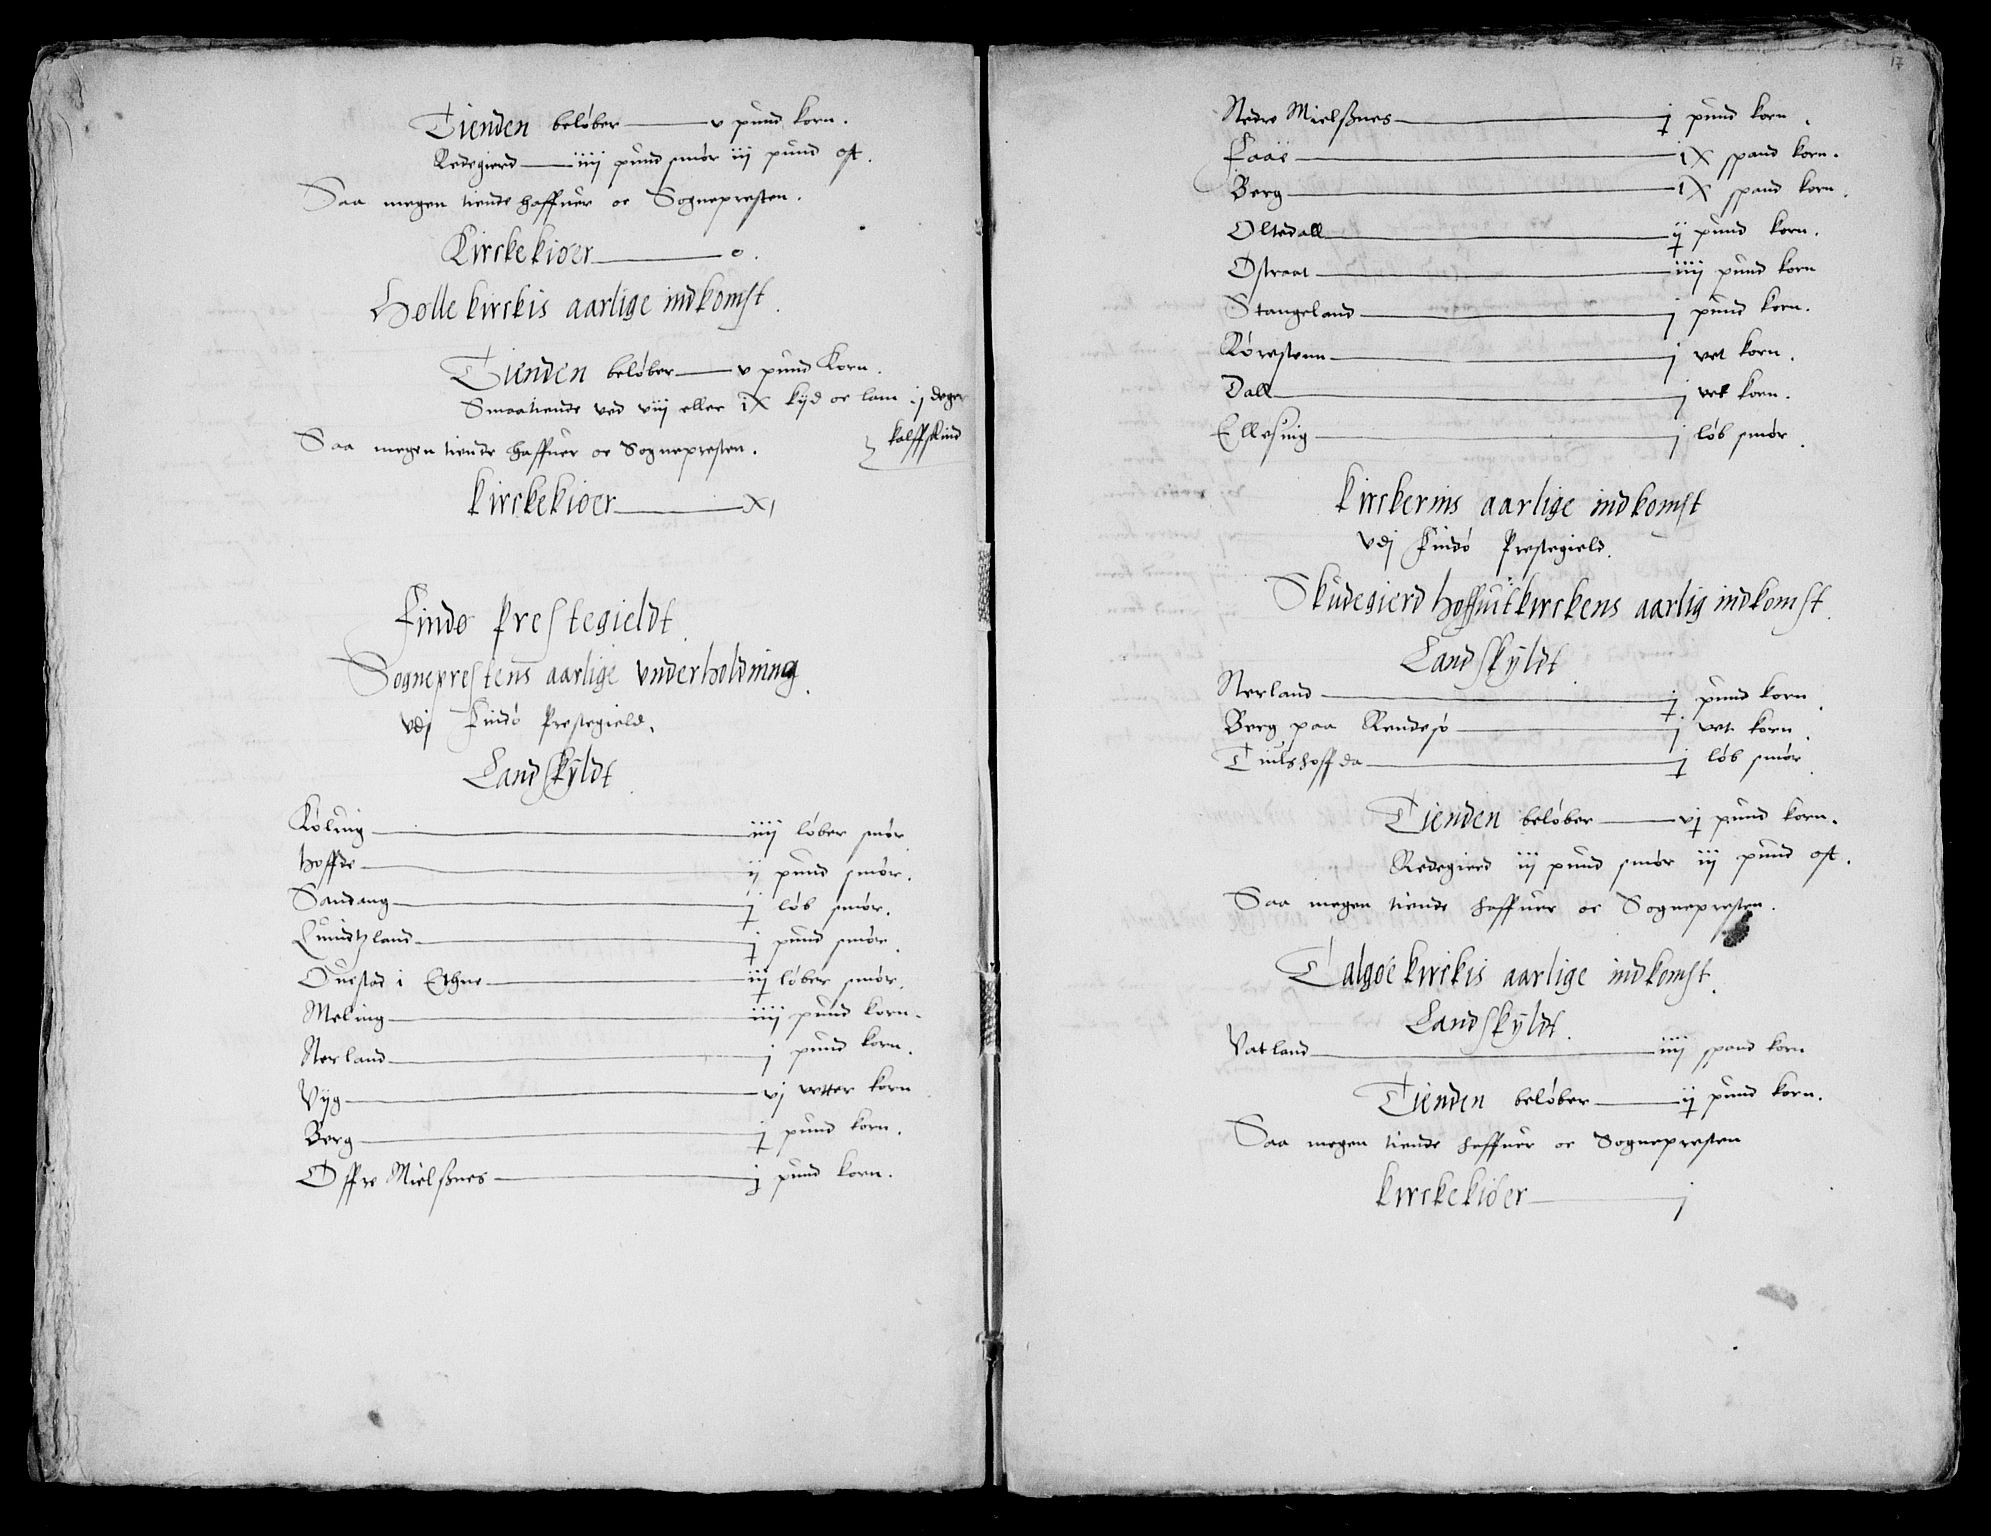 Tienden beløber — v pund korn.
Redegierd — iiij pund smør iij pund ost.
Saa megen tiende haffuer oc Sognepresten.
Kirckekiøer — 0.
Hølle kirckis aarlige indkomst.
Tienden beløber — v pund Korn.
Smaatiende ved viij eller ix kijd oc lam. j deger
kalffskind
Saa megen tiende haffuer oc Sognepresten.
Kirckekiøer — xj
Findø Prestegieldt.
Sogneprestens aarlige vnderholdning.
vdj Findø Prestegield.
Landskyldt.
Køluig — iiij løber smør
Hoffde — ij pund smør.
Sandang — j løb smør.
Luindtzland — j pund smør.
Ouestad i Ethne — iij løber smør.
Meling — iiij pund korn.
Nerland — j pund korn.
Vijg — vj vetter korn
Berg — j pund korn.
Offre Mielssnes — j pund korn.
17
Nedre Mielssnes — j pund korn.
Faaë — ix spand korn.
Berg — ix spand korn.
Oltedall — ij pund korn.
Ostraat — iiij pund korn
Stangeland — j pund korn.
Røresten — j vet korn.
Dall — j vet korn.
Ellesuig — j løb smør.
Kirckernis aarlige indkomst
vdj Findø Prestegield.
Skudegierd hoffuitkirckens aarlig indkomst.
Landskyldt
Nerland — j pund korn.
Berg paa Rendesø — j vet korn.
Tiulshoffda — j løb smør.
Tienden beløber — vj pund korn.
Redegierd iij pund smør iij pund ost.
Saa megen tiende haffuer oc Sognepresten.
Talgøe kirckis aarlige indkomst.
Landskyldt.
Vatland — iiij spand korn
Tienden beløber — ij pund korn.
Saa megen tiende haffuer oc Sognepresten
Kirckekiøer — j